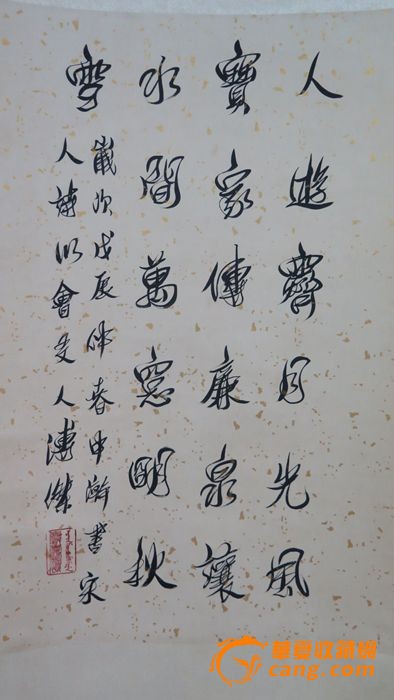 人遊霽月光風
寶家傳廉泉讓
水間萬窓明秋
雪
歲次戊辰仲春中澣書宋
人詩以會友人溥傑
華夏收藏網
cang.com